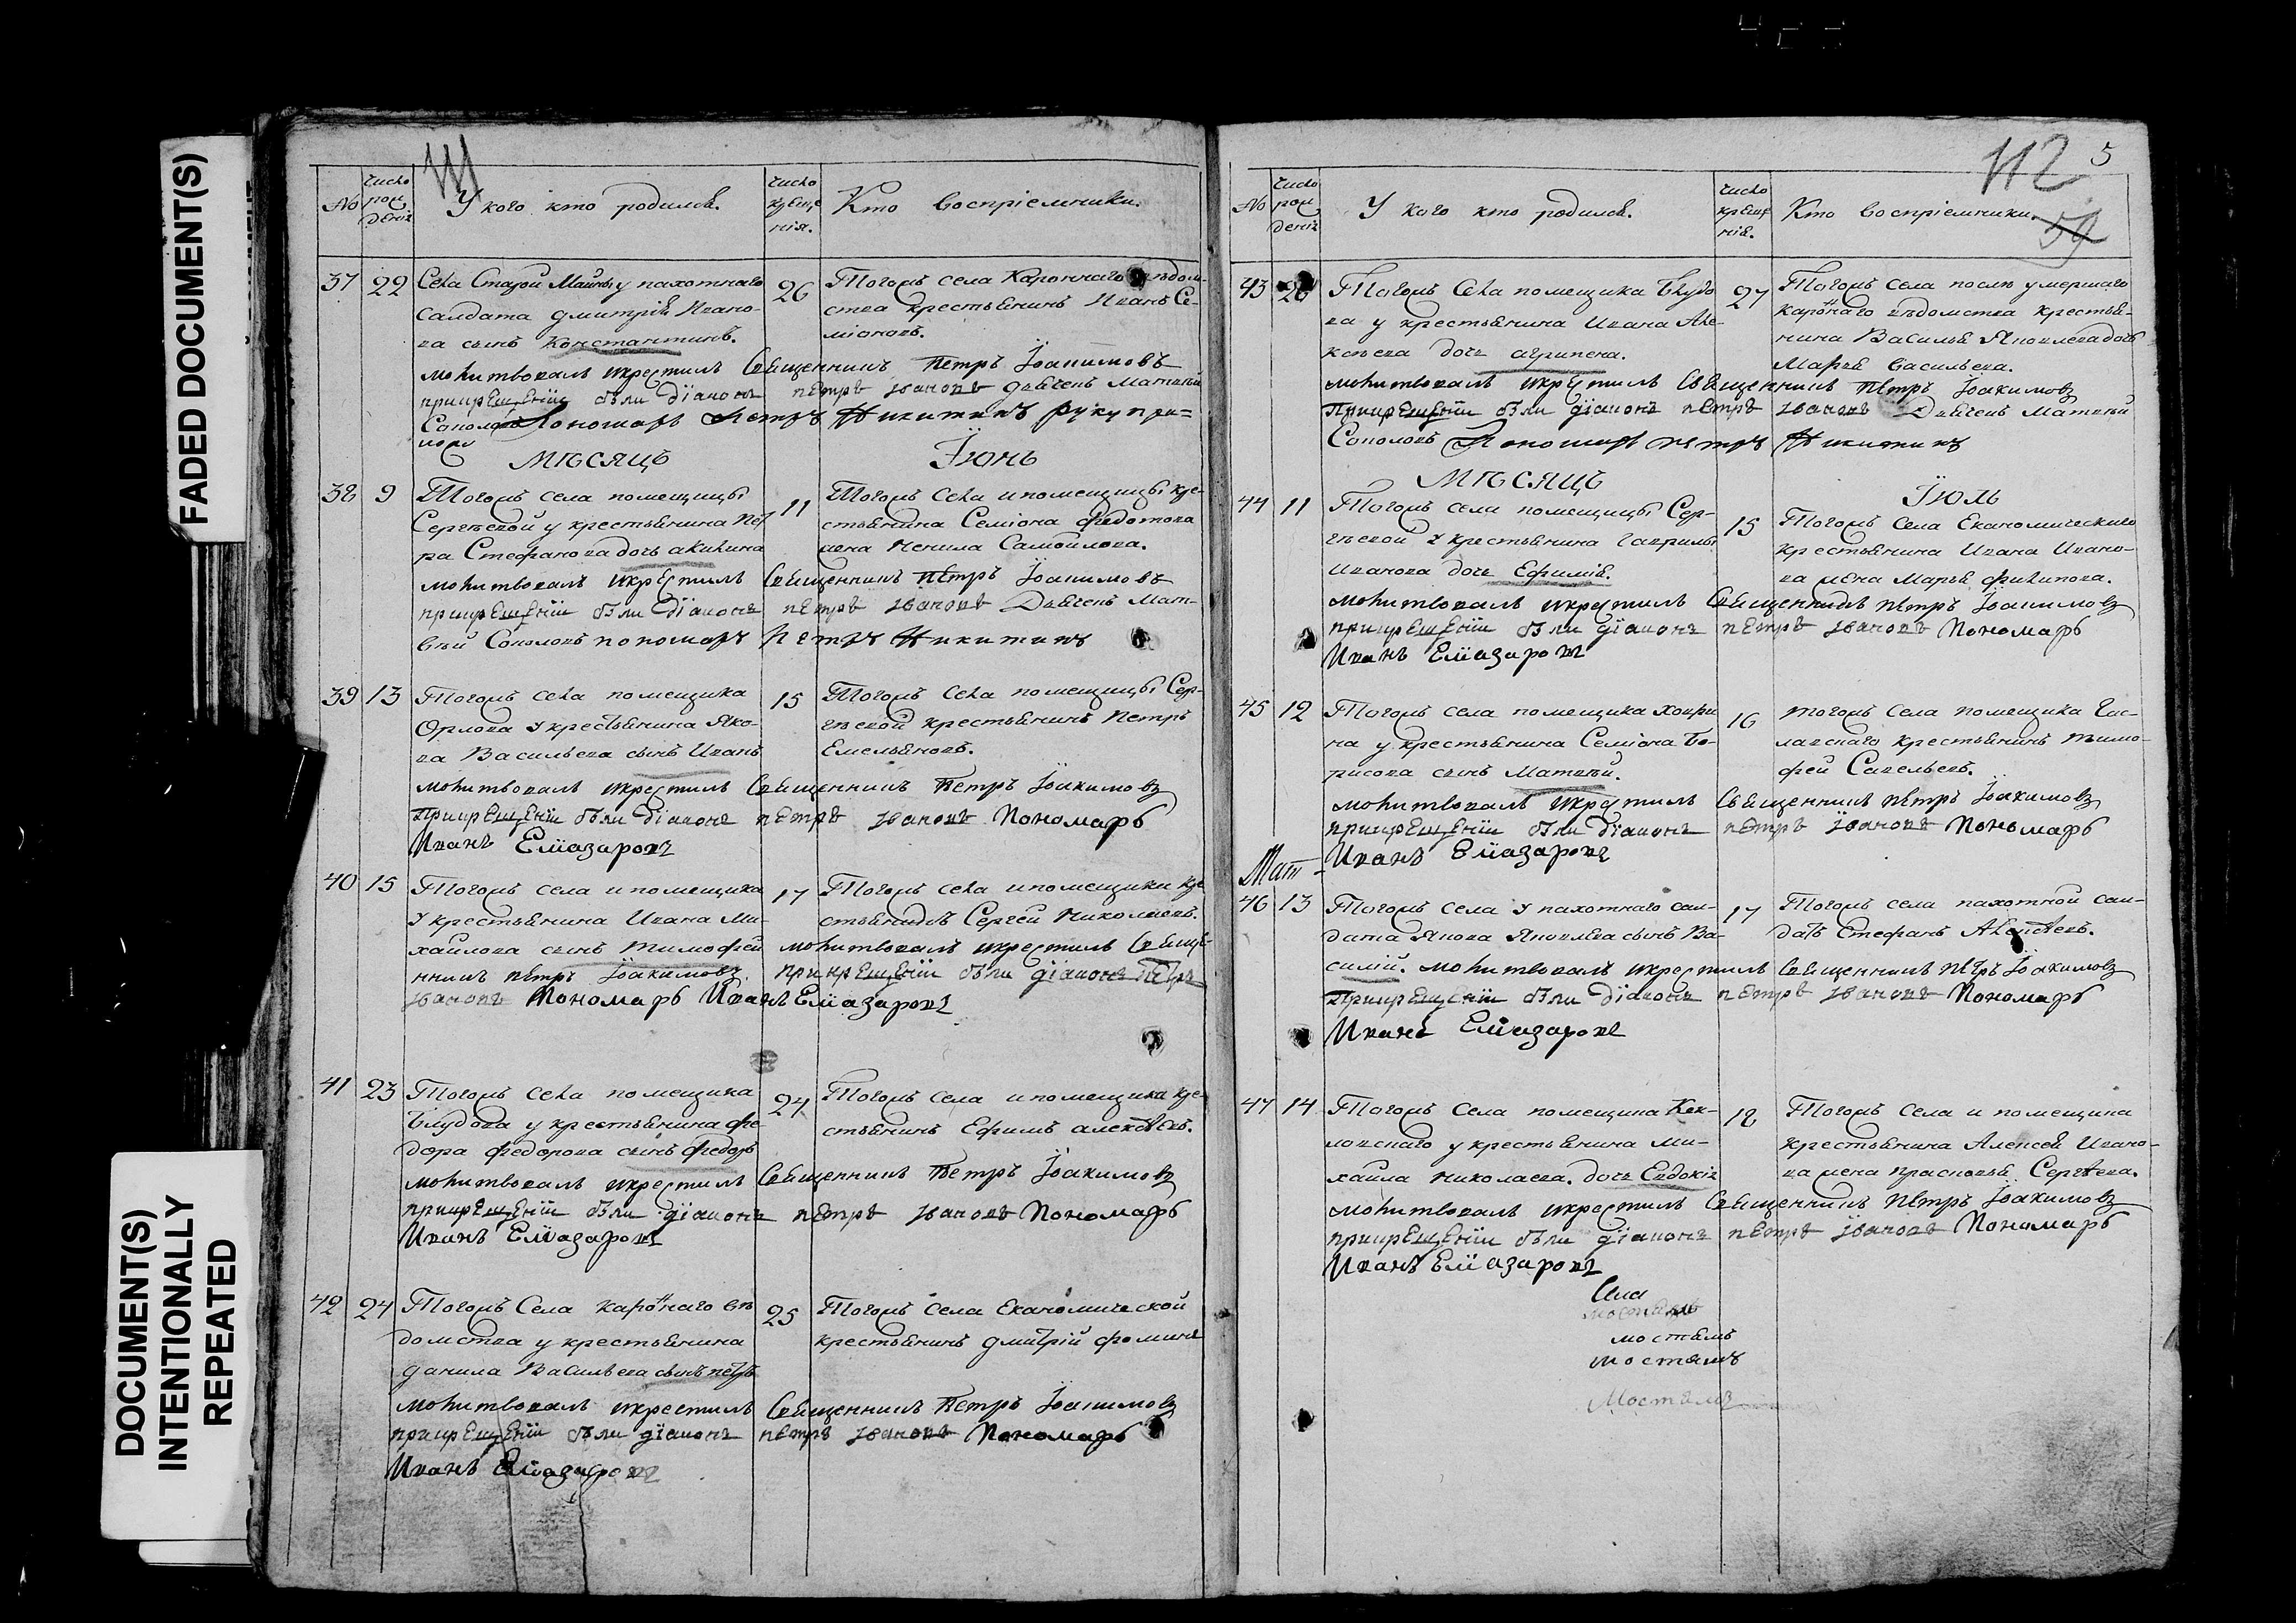 FADED DOCUMENT(S)
DOCUMENT(S)
INTENTIONALLY
REPEATED
111
№
Число рождения
У кого кто родился.
Число крещения.
Кто восприемники.
37 22
Села Старой Майны у пахотнаго
салдата Дмитрія Ивано-
ва сынъ Константинъ.
26
Тогожъ села Каронънаго ведом-
ства крестьянинъ Иванъ Се-
міоновъ.
молитвовалъ икрестилъ Священникъ Петръ Іоакимовъ
прикрещеніи были Діаконъ петръ Ивановъ Дьячекъ Матвей
Соколовъ Пономарь Петръ Никитинъ руку при-
ложи
МѢСЯЦЪ Іюнь
38 9
Тогожъ села помещицы
Сергѣевой у крестьянина Пет
ра Стефанова дочь акилина
11
Тогожъ села ипомещицы кре-
стьянина Семіона Федотова
жена Ненила Самойлова.
молитвовалъ икрестилъ Священникъ Петръ Іоакимовъ
прикрещеніи были Діаконъ петръ Ивановъ Дьячекъ Мат-
вѣй Соколовъ пономарь Петръ Никитинъ
39 13
Тогожъ села помещика
Орлова у крестьянина Яко-
ва Васильева сынъ Иванъ
15
Тогожъ села помещицы Сер-
гѣевой крестьянинъ Петръ
Емельяновъ.
молитвовалъ икрестилъ Священникъ Петръ Іоакимовъ
Прикрещеніи были Діаконъ петръ Ивановъ Пономарь
Иванъ Еліазаровъ
40 15
Тогожъ села ипомещика
у крестьянина Ивана Ми-
хайлова сынъ Тимофей
17
Тогожъ села ипомещика кре
стьянинъ Сергей Николаевъ.
молитвовалъ икрестилъ Свяще-
нникъ петръ Іоакимовъ. прикрещеніи были діаконъ Петръ
Ивановъ Пономарь Иванъ Еліазаровъ
41 23
Тогожъ села помещика
Блудова у крестьянина Фе
дора Федорова сынъ Федоръ
24
Тогожъ села ипомещика кре
стьянинъ Ефимъ алексѣевъ.
молитвовалъ икрестилъ Священникъ Петръ Іоакимовъ
прикрещеніи были діаконъ петръ Ивановъ Пономарь
Иванъ Еліазаровъ
42 24
Тогожъ Села каронънаго вѣ
домства у крестьянина
данила Васильева сынъ петръ
25
Тогожъ села Еканомической
крестьянинъ дмитрій фоминъ
молитвовалъ икрестилъ Священникъ Петръ Іоакимовъ
прикрещеніи были діаконъ петръ Ивановъ Пономарь
Иванъ Еліазаровъ
112 5
59
№
Число рождения
У кого кто родился.
Число крещения.
Кто восприемники.
43 26
Тогожъ Села помещика Блудо
ва у крестьянина Ивана Але-
ксѣева дочь агрипена.
27
Тогожъ села послѣ умершаго
каронънаго вѣдомства крестья-
нина Василья Яковлева дочь
Марья Васильева.
молитвовалъ икрестилъ Священникъ Петръ Іоакимовъ
Прикрещеніи были діаконъ петръ Ивановъ Дьячекъ Матвѣй
Соколовъ Пономарь петръ Никитинъ
МѢСЯЦЪ Іюль
44 11
Тогожъ села помещицы Сер-
гѣевой у крестьянина Гаврилы
Иванова дочь Ефимія.
15
Тогожъ Села Еканомическаго
крестьянина Ивана Ивано-
ва жена Марья Филипова.
молитвовалъ икрестилъ Священникъ петръ Іоакимовъ
прикрещеніи были діаконъ петръ Ивановъ Пономарь
Иванъ Еліазаровъ
45 12
Тогожъ села помещика Ховри
на у крестьянина Семіона Бо-
рисова сынъ Матвѣй.
16
Тогожъ села помещика
крестьянинъ Тимо-
фей Савельевъ.
молитвовалъ икрестилъ Священникъ петръ Іоакимовъ
прикрещеніи были Діаконъ петръ Ивановъ Пономарь
Иванъ Еліазаровъ
Мат
46 13
Тогожъ Села у пахотнаго сал-
дата Якова Яковлева сынъ Ва-
силій.
17
Тогожъ села пахотной сал-
датъ Стефанъ Алексѣевъ.
молитвовалъ икрестилъ Священникъ петръ Іоакимовъ
Прикрещеніи были Діаконъ петръ Ивановъ Пономарь
Иванъ Еліазаровъ
47 14
Тогожъ Села помещика
у крестьянина Ми-
хайла Николаева. дочь Евдокія
18
Тогожъ Села и помещика
крестьянина Алексея Ивано-
ва жена Прасковья Сергѣева.
молитвовалъ икрестилъ Священникъ петръ Іоакимовъ
прикрещеніи были діаконъ петръ Ивановъ Пономарь
Иванъ Еліазаровъ